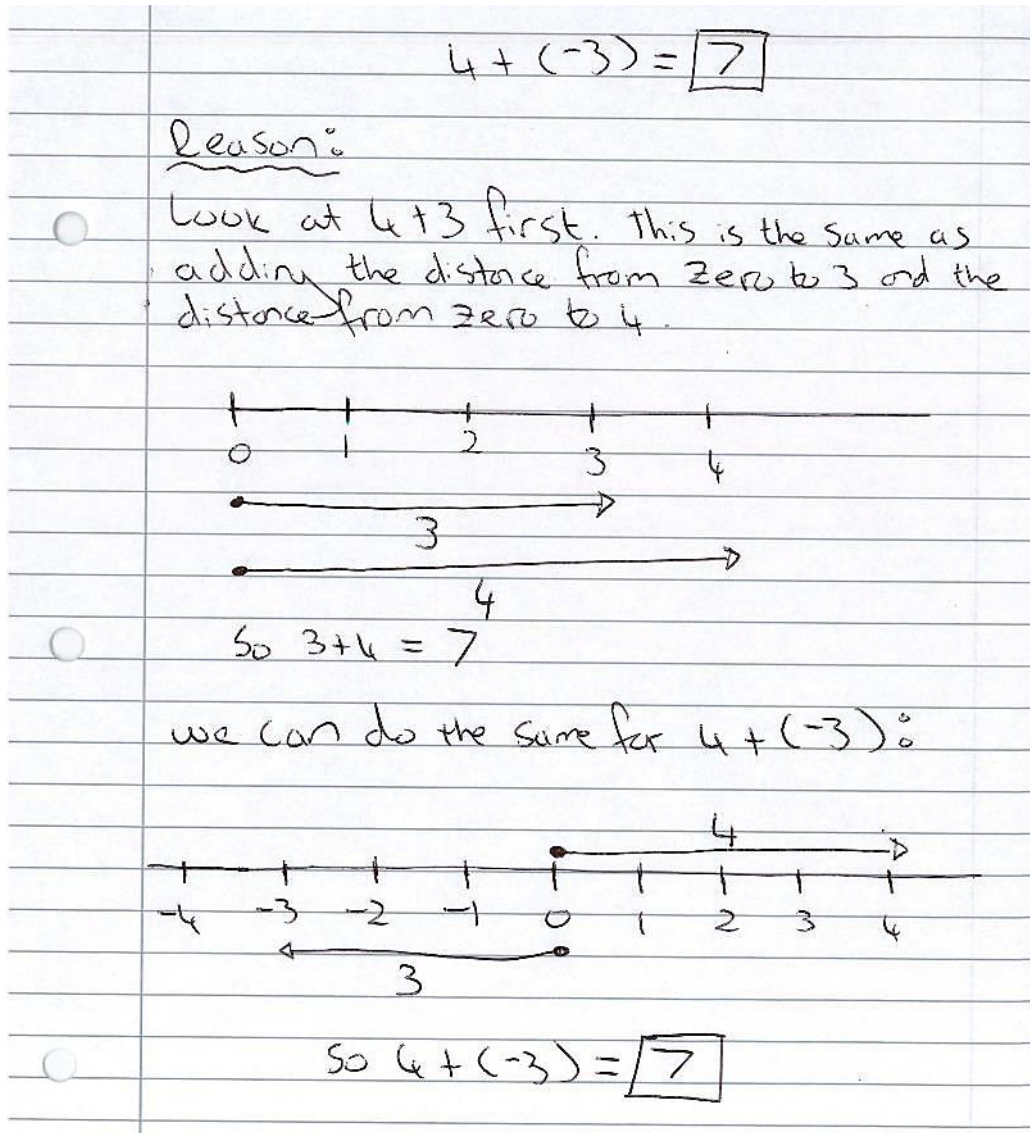 4 + (-3) = 7
Reason:
Look at 4+3 first. This is the same as
adding the distance from zero to 3 and the
distance from zero to 4.
0 1 2 3 4
3
4
So 3+4 = 7
we can do the same for 4 + (-3):
4
-4 -3 -2 -1 0 1 2 3 4
3
So 4 + (-3) = 7